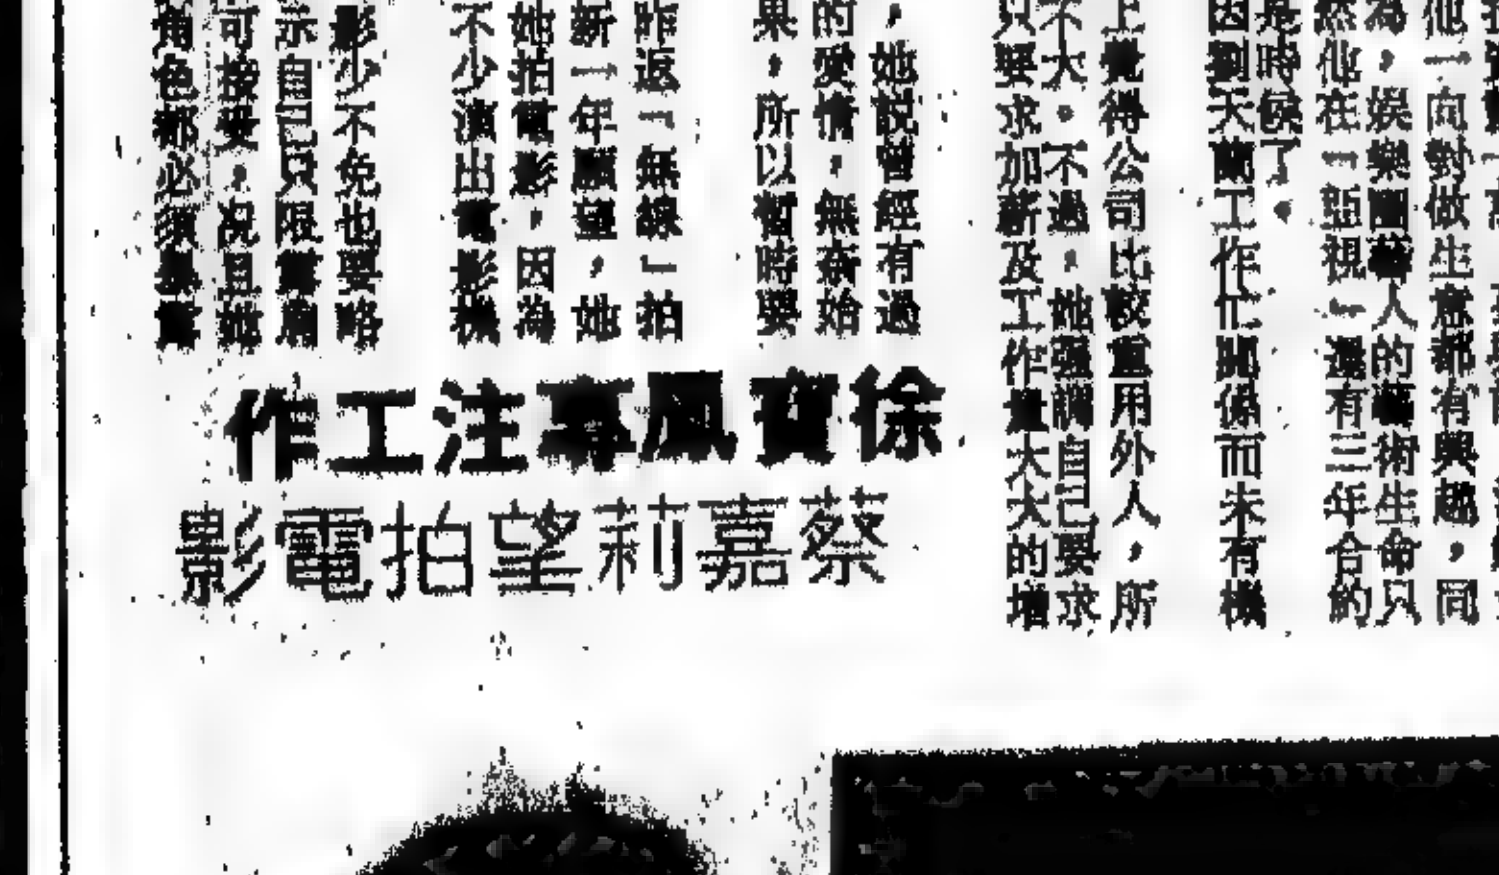 他一向對做生意都有興趣，同
為，娛樂圈藝人的藝術生命只
然他在「亞視」還有三年合約
是時候了。
因劉天蘭工作忙關係而未有機
上覺得公司比較重用外人，所
不大。不過，她強調自己要求
只要求加薪及工作量大大的增
徐寶鳳專注工作
蔡嘉莉望拍電影
，她說曾經有過
的愛情，無奈始
果，所以暫時要
昨返「無線」拍
新一年願望，她
她拍電影，因為
不少演出電影機
影少不免也要略
示自己只限
可接受，況且她
角色都必須